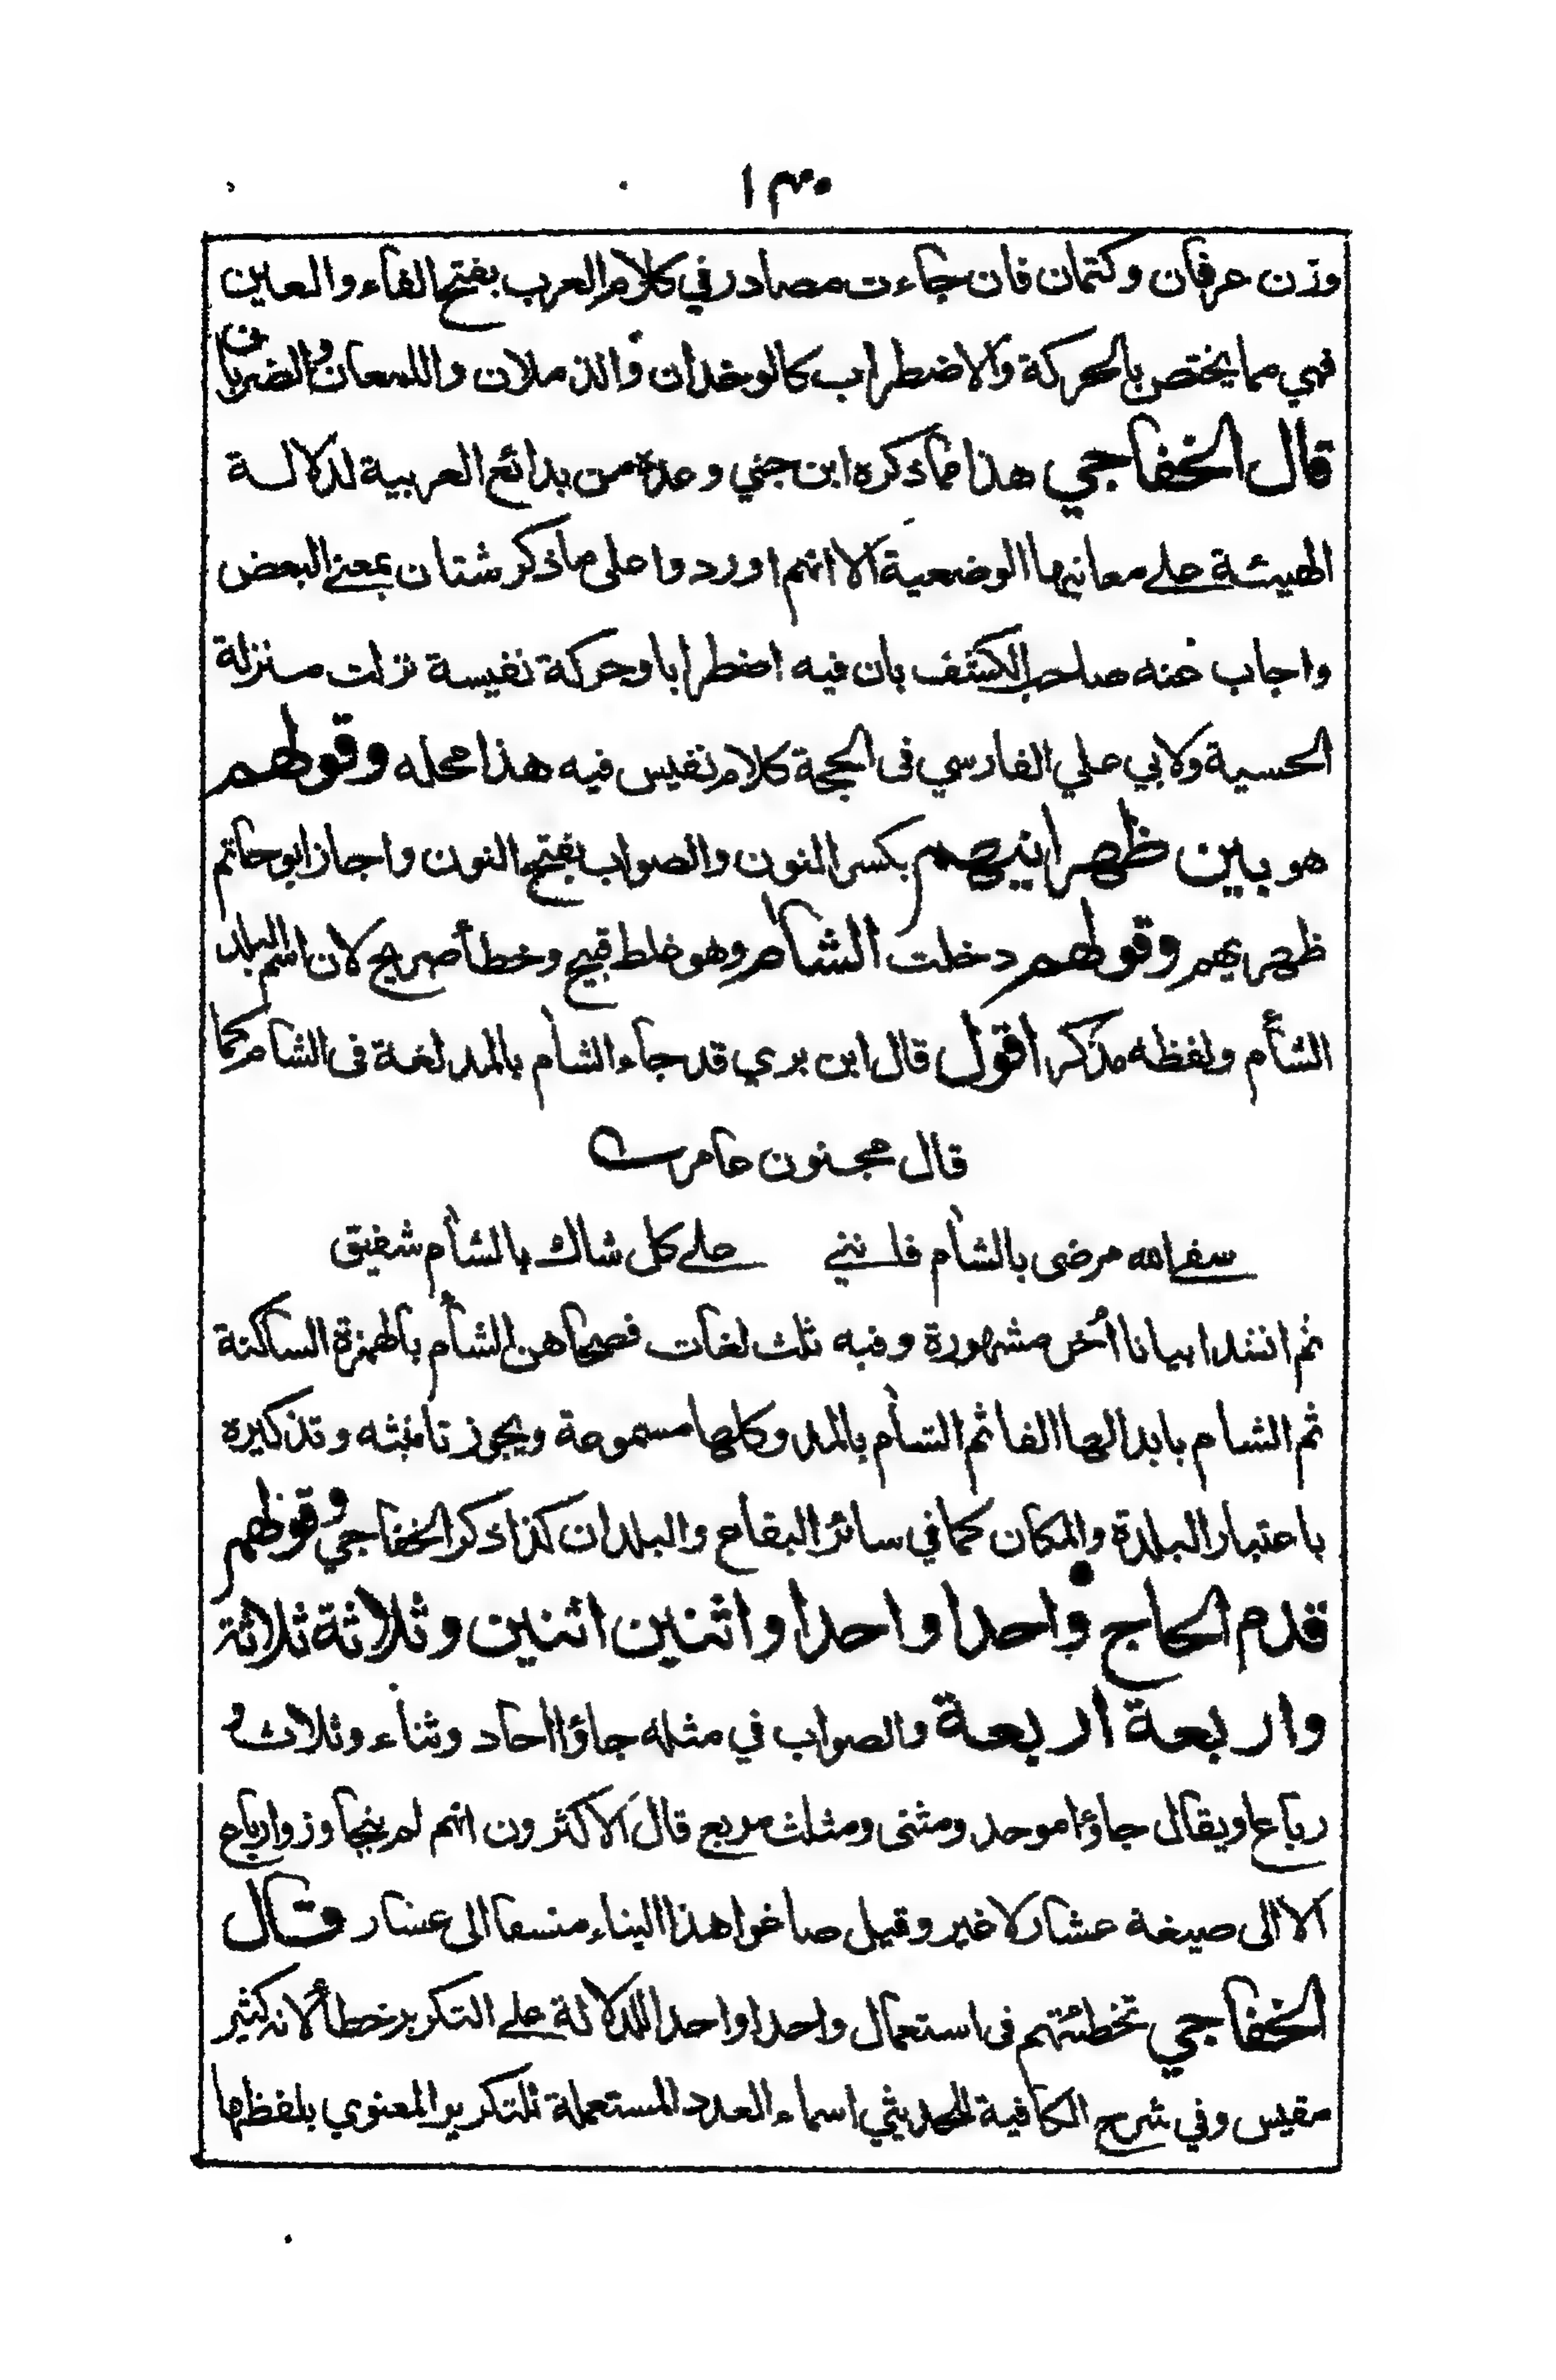 ١٣٠
وزن عرفان وكتمان فان جاءت مصادر في كلام العرب بفتح الفاء والعين
فهي مما يختص بالحركة والاضطراب كالوخدان والذملان واللمعان والضربان
قال الخفاجي هذا مما ذكره ابن جني وعده من بدائع العربية لدلالة
الهيئة على معانيها الوضعية الا انهم اوردوا على ما ذكر شتان بمعنى البعض
واجاب عنه صاحب الكشف بان فيه اضطرابا وحركة نفيسة نزلت منزلة
الحسية ولابي علي الفارسي فى الحجة كلام نفيس فيه هذا محله وقولهم
هو بين ظهرانيهم بكسر النون والصواب بفتح النون واجاز ابو حاتم
ظهريهم وقولهم دخلت الشام وهو غلط قبيح وخطأ صريح لان اسم البلد
الشأم ولفظه مذكر اقول قال ابن بري قد جاء الشآم بالمد لغة فى الشام كما
قال مجنون عامر
سقى الله مرضى بالشآم فانني على كل شاك بالشآم شفيق
ثم انشد ابياتا أخر مشهورة وفيه ثلث لغات فصحاهن الشأم بالهمزة الساكنة
ثم الشام بابدالها الفا ثم الشآم بالمد وكلها مسموعة ويجوز تانيثه وتذكيره
باعتبار البلدة والمكان كما في سائر البقاع والبلدان كذا ذكر الخفاجي وقولهم
قدم الحاج واحدا واحدا واثنين اثنين وثلاثة ثلاثة
واربعة اربعة والصواب في مثله جاؤا احاد وثناء وثلاث و
رباع او يقال جاؤا موحد ومثنى ومثلث مربع قال الاكثرون انهم لم يتجاوزوا رباع
الا الى صيغة عشار لا غير وقيل صاغوا هذا البناء منسقا الى عشار وقال
الخفاجي تخطئتهم فى استعمال واحدا واحدا للدلالة على التكرير خطأ لانه كثير
مقيس وفي شرح الكافية للحديثي اسماء العدد المستعملة للتكرير المعنوي بلفظها